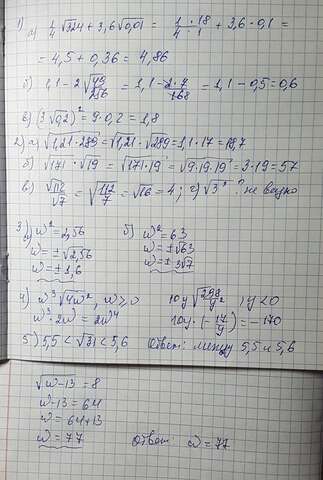 1) а) 1/4 √324 + 3,6√0,01 = (1 · 18)/(4 · 1) + 3,6 · 0,1 =
= 4,5 + 0,36 = 4,86
б) 1,1 - 2√(49/256) = 1,1 - = 1,1 - 0,5 = 0,6
в) (3√0,2)² = 9 · 0,2 = 1,8
2) а) √(1,21 · 289) = √1,21 · √289 = 1,1 · 17 = 18,7
б) √171 · √19 = √(171 · 19) = √(9 · 19 · 19) = 3 · 19 = 57
в) √112/√7 = √(112/7) = √16 = 4; г) √3⁸ не видно
3) а) w² = 2,56 б) w² = 63
w = ±√2,56 w = ±√63
w = ±1,6 w = ±3√7
4) w³√(4w²), w > 0 10y√(289/y²), y < 0
w³ · 2w = 2w⁴ 10y · (-17/y) = -170
5) 5,5 < √31 < 5,6 Ответ: между 5,5 и 5,6
√(w-13) = 8
w - 13 = 64
w = 64 + 13
w = 77 Ответ: w = 77